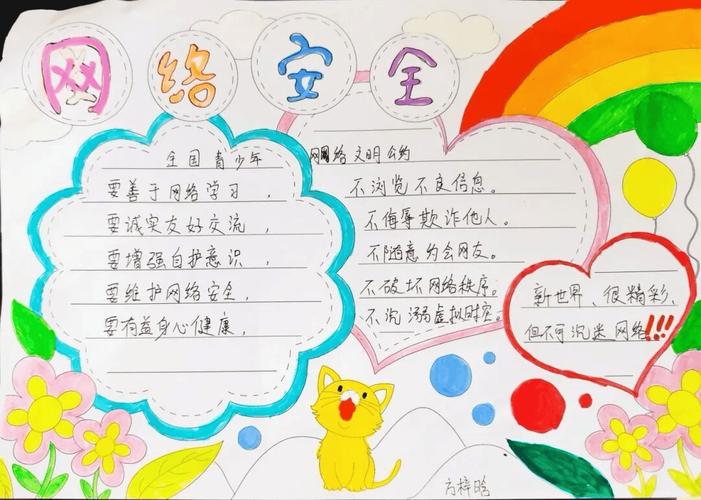 网络安全
全国青少年
要善于网络学习，
要诚实友好交流，
要增强自护意识，
要维护网络安全，
要有益身心健康，
网络文明公约
不浏览不良信息。
不侮辱欺诈他人。
不随意为会网友。
不破坏网络秩序。
不沉溺虚拟时空。
新世界、很精彩、
但不可沉迷网络!!!
方梓晗